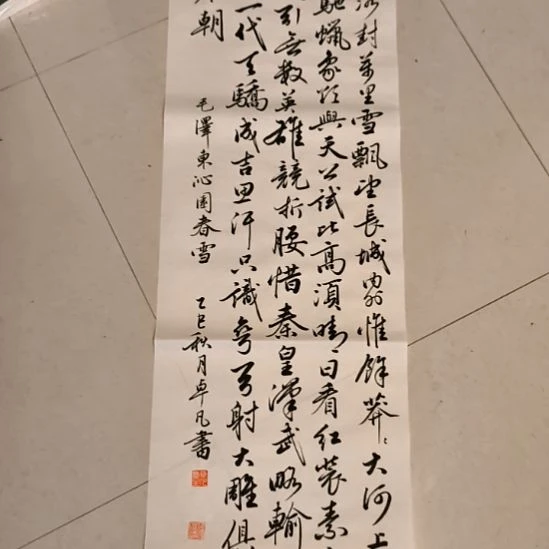 封萬里雪飄望長城内外惟餘莽〻大河上
馳蠟象欲與天公試比高須晴日看紅裝素
引無數英雄競折腰惜秦皇漢武略輸
一代天驕成吉思汗只識彎弓射大雕俱
朝
毛澤東沁園春雪
乙巳秋月卓凡書